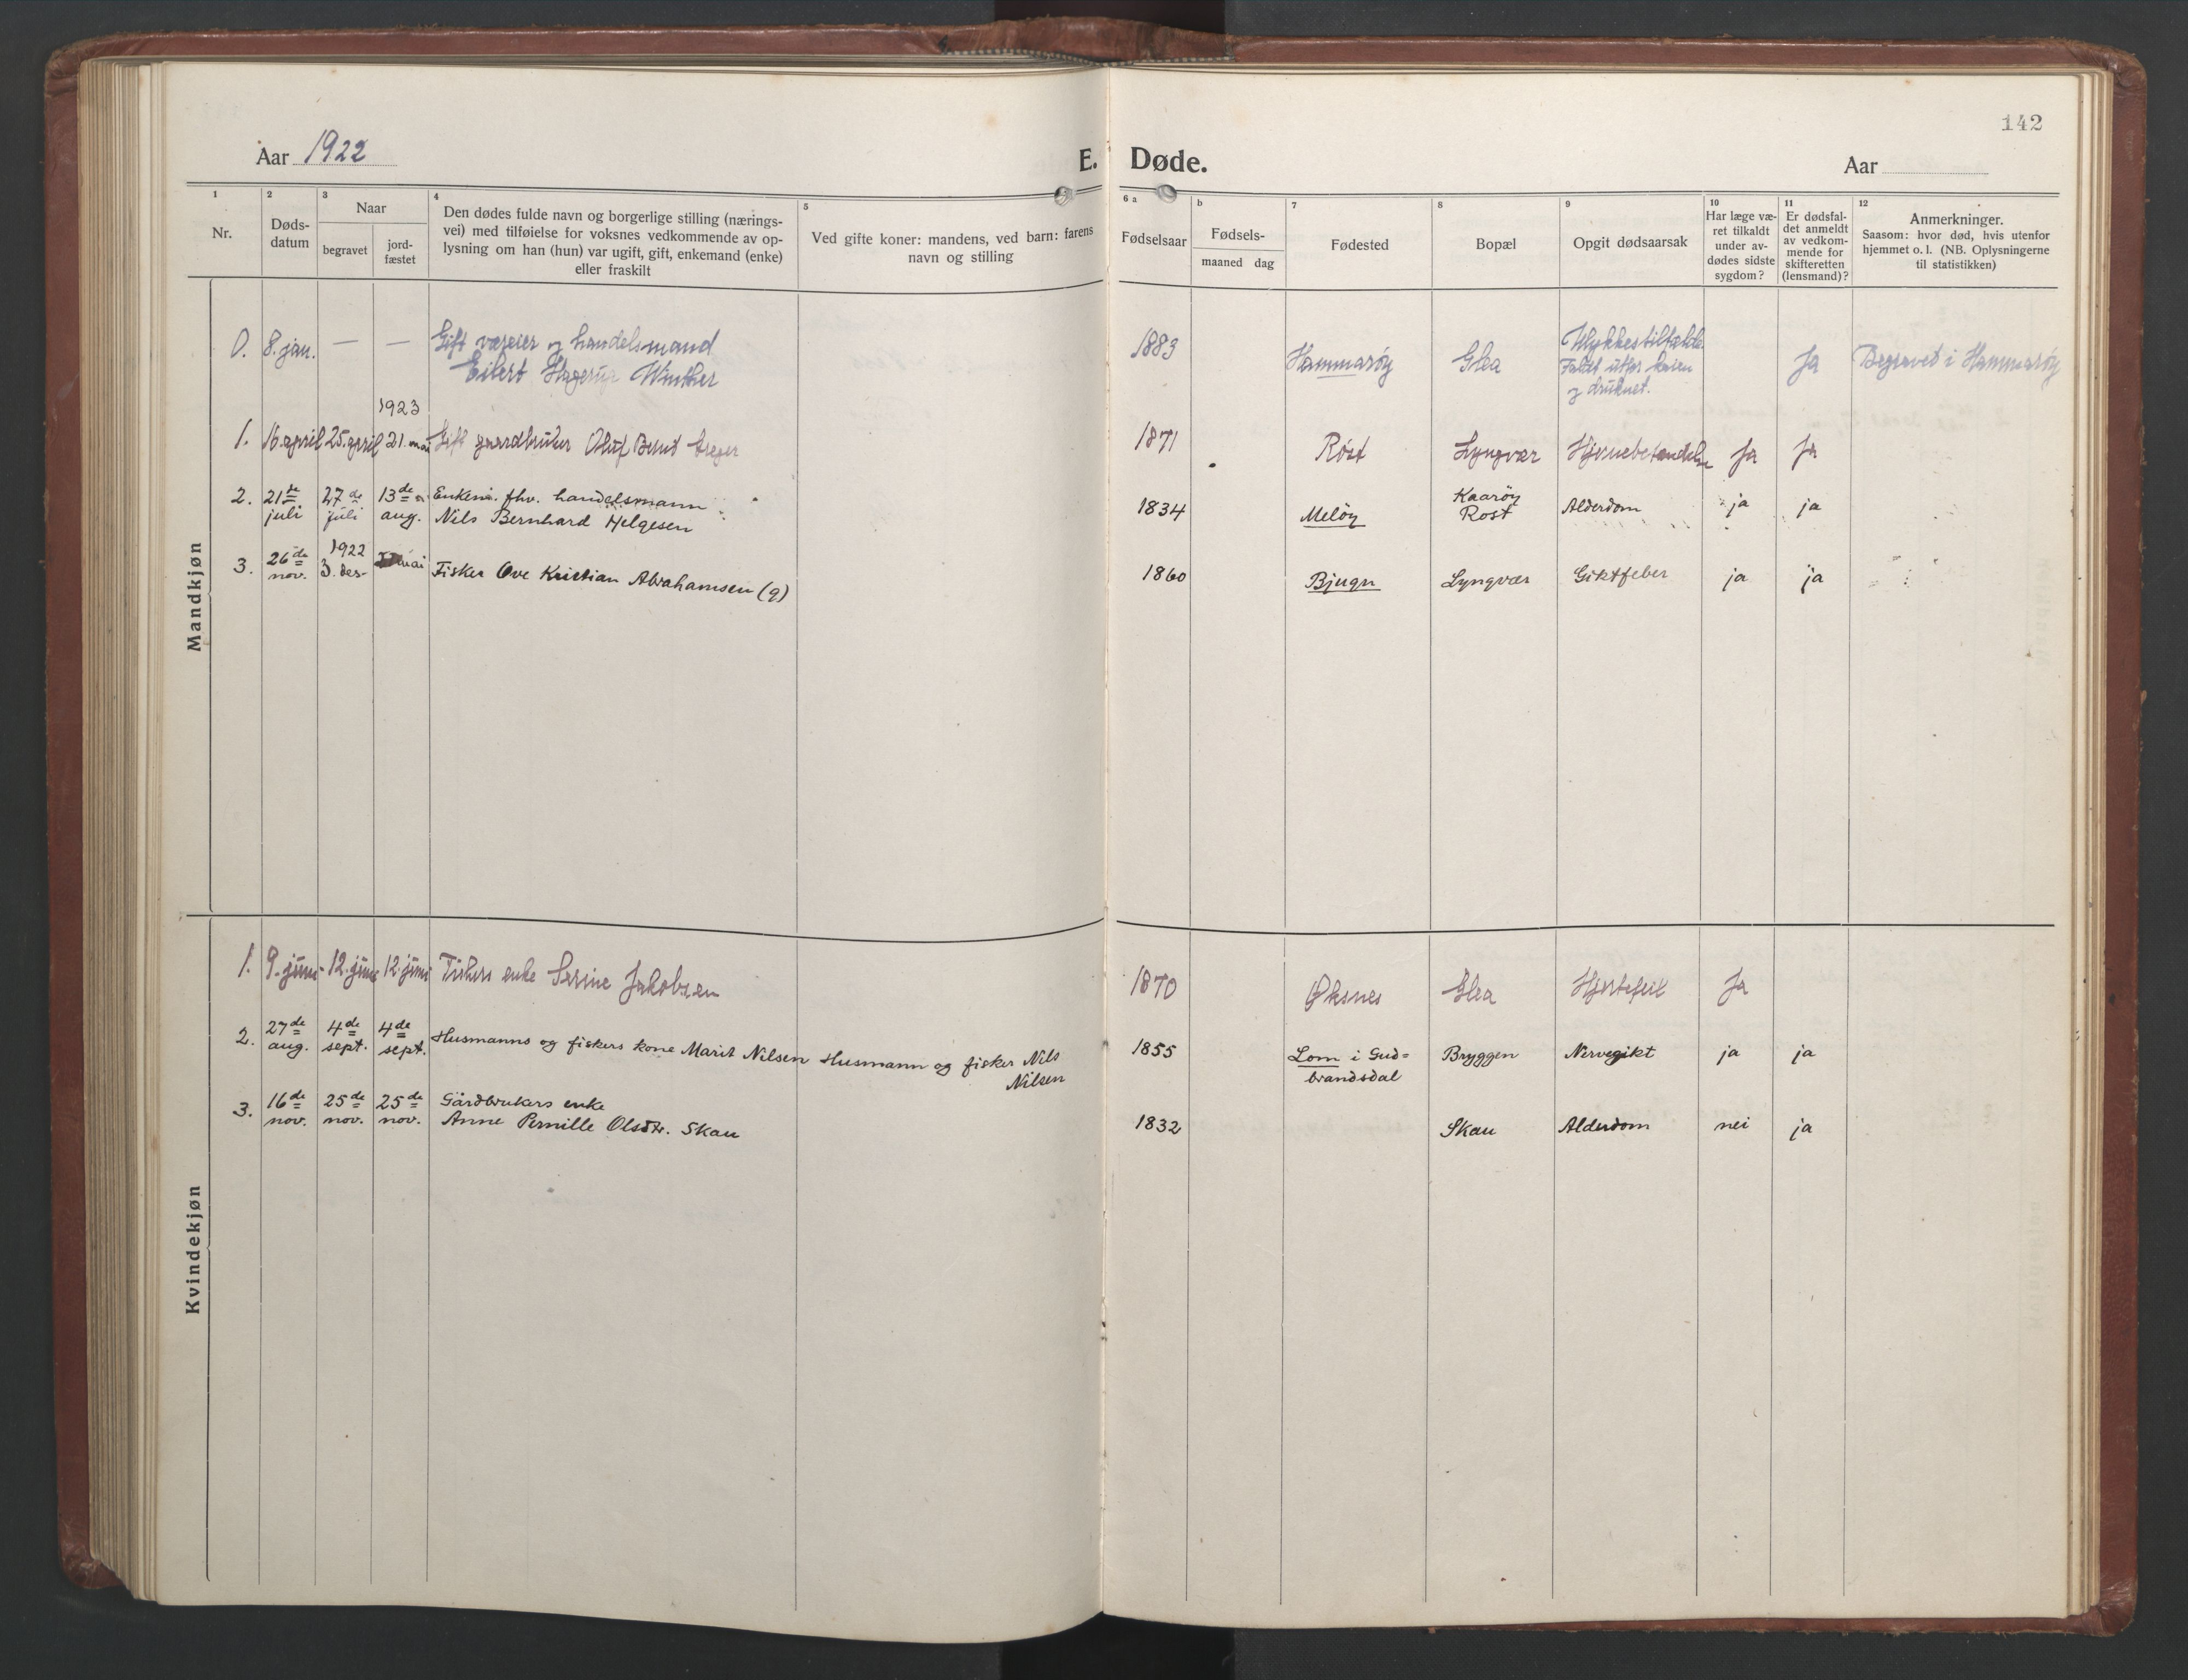 142
Aar 1922
E. Døde.
Aar
1
2
3
4
5
6 a
b
7
8
9
10
11
12
Nr.
Døds-
datum
Naar
begravet
jord-
fæstet
Den dødes fulde navn og borgerlige stilling (nærings-
vei) med tilføielse for voksnes vedkommende av op-
lysning om han (hun) var ugift, gift, enkemand (enke)
eller fraskilt
Ved gifte koner: mandens, ved barn: farens
navn og stilling
Fødselsaar
Fødsels-
maaned dag
Fødested
Bopæl
Opgit dødsaarsak
Har læge væ-
ret tilkaldt
under av-
dødes sidste
sygdom?
Er dødsfal-
det anmeldt
av vedkom-
mende for
skifteretten
(lensmand)?
Anmerkninger.
Saasom: hvor død, hvis utenfor
hjemmet o. l. (NB. Oplysningerne
til statistikken)
Mandkjøn
0. 8. jan. — — Gift væreier og handelsmand
Eilert Hagerup Winther
1883 Hammarøy Glea Ulykkestilfælde
Faldt utfor kaien
og druknet.
Ja Begravet i Hammarøy
1923
1. 16. april 25. april 21. mai Gift gaardbruker Oluf Bernt
1871 Røst Lyngvær Hjernebetændelse Ja Ja
2. 21de juli 27de juli 13de aug. Enkem. fhv. handelsmann
Nils Bernhard Helgesen
1834 Meløy Kaarøy
Røst Alderdom ja ja
1922
3. 26de nov. 3. des. mai Fisker Ove Kristian Abrahamsen (g)
1860 Bjugn Lyngvær Giktfeber ja ja
Kvindekjøn
1. 9. juni 12. juni 12. juni Fiskers enke Serine Jakobsen
1870 Øksnes Glea Hjertefeil Ja
2. 27de aug. 4de sept. 4de sept. Husmanns og fiskers kone Marit Nilsen Husmann og fisker Nils
Nilsen
1855 Lom i Gud=
brandsdal Bryggen Nervegikt ja ja
3. 16de nov. 25de nov. 25de nov. Gårdbrukers enke
Anne Pernille Olsdtr. Skau
1832 Skau Alderdom nei ja